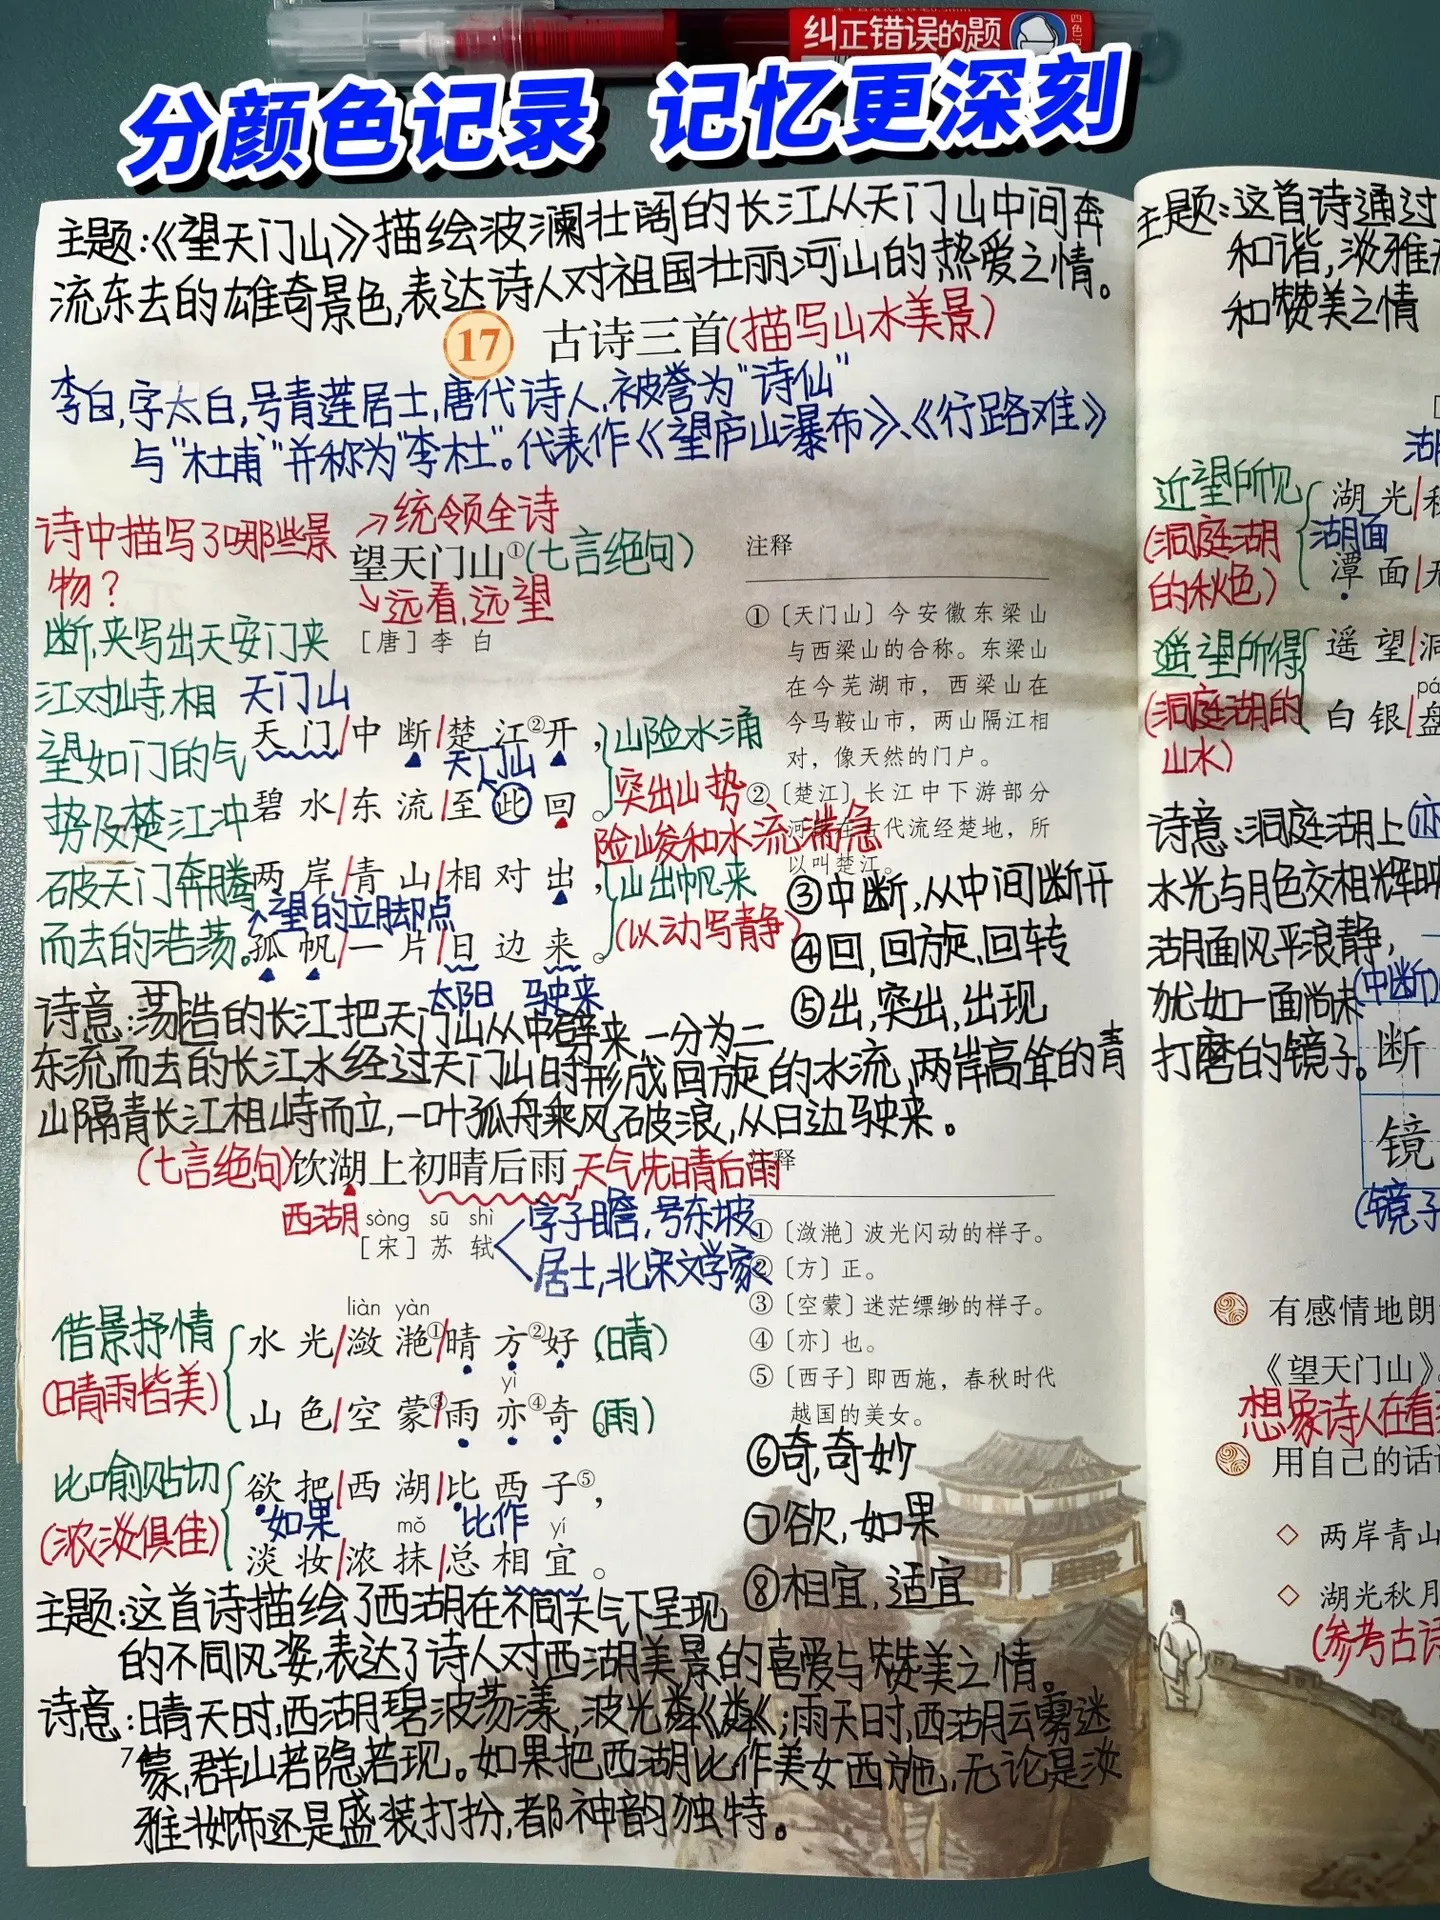 纠正错误的题
分颜色记录 记忆更深刻
主题:《望天门山》描绘波澜壮阔的长江从天门山中间奔
流东去的雄奇景色,表达诗人对祖国壮丽河山的热爱之情。
17 古诗三首(描写山水美景)
李白,字太白,号青莲居士,唐代诗人,被誉为"诗仙"
与"杜甫"并称为"李杜"。代表作《望庐山瀑布》、《行路难》
诗中描写了哪些景
物?
统领全诗
望天门山①(七言绝句)
远看,远望
[唐]李 白
断,夹写出天安门夹
江对峙,相
望如门的气
势及楚江冲
破天门奔腾
而去的浩荡。
天门山
天门/中断/楚江②开,
天门山
碧水/东流/至此回。
两岸/青山/相对出,
望的立脚点
孤帆/一片/日边来。
太阳 驶来
山险水涌
突出山势
险峻和水流湍急
山出帆来
(以动写静)
注释
①〔天门山〕今安徽东梁山
与西梁山的合称。东梁山
在今芜湖市,西梁山在
今马鞍山市,两山隔江相
对,像天然的门户。
②〔楚江〕长江中下游部分
河段在古代流经楚地,所
以叫楚江。
③中断,从中间断开
④回,回旋,回转
⑤出,突出,出现
诗意:荡浩的长江把天门山从中劈来,一分为二
东流而去的长江水经过天门山时形成回旋的水流,两岸高耸的青
山隔青长江相峙而立,一叶孤舟乘风破浪,从日边驶来。
(七言绝句)饮湖上初晴后雨,天气先晴后雨
西湖
sòng sū shì
[宋]苏 轼
字子瞻,号东坡
居士,北宋文学家
借景抒情
(晴雨皆美)
liàn yàn
水光/潋滟①/晴方②好,(晴)
yì
山色/空蒙③/雨亦④奇。(雨)
比喻贴切
(浓淡俱佳)
欲把/西湖/比西子⑤,
如果 比作
mǒ yí
淡妆/浓抹/总相宜。
注释
①〔潋滟〕波光闪动的样子。
②〔方〕正。
③〔空蒙〕迷茫缥缈的样子。
④〔亦〕也。
⑤〔西子〕即西施,春秋时代
越国的美女。
⑥奇,奇妙
⑦欲,如果
⑧相宜,适宜
主题:这首诗描绘了西湖在不同天气下呈现
的不同风姿,表达了诗人对西湖美景的喜爱与赞美之情。
诗意:晴天时,西湖碧波荡漾,波光粼粼;雨天时,西湖云雾迷
蒙,群山若隐若现。如果把西湖比作美女西施,无论是淡
雅妆饰还是盛装打扮,都神韵独特。
主题:这首诗通过
和谐,淡雅
和赞美之情
近望所见
(洞庭湖
的秋色)
湖光/
湖面
潭面/
遥望所得
(洞庭湖的
山水)
遥望/洞
白银/盘
诗意:洞庭湖上
水光与月色交相辉映
湖面风平浪静,
犹如一面尚未
打磨的镜子。
(中断)
断
镜
(镜子
有感情地朗
《望天门山》
想象诗人在看
用自己的话
◇ 两岸青山
◇ 湖光秋月
(参考古诗